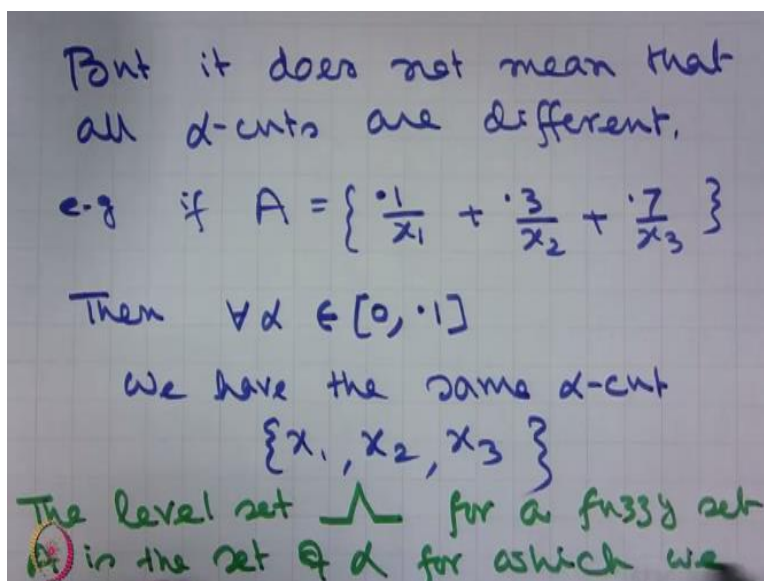 But it does not mean that
all α-cuts are different.
e.g if A = { .1/x₁ + .3/x₂ + .7/x₃ }
Then ∀ α ∈ [0, .1]
we have the same α-cut
{x₁, x₂, x₃}
The level set Λ for a fuzzy set
A is the set of α for which we